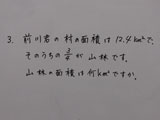 3. 前川君の村の面積は12.4km²で、
そのうちの3/5が山林です。
山林の面積は何km²ですか。